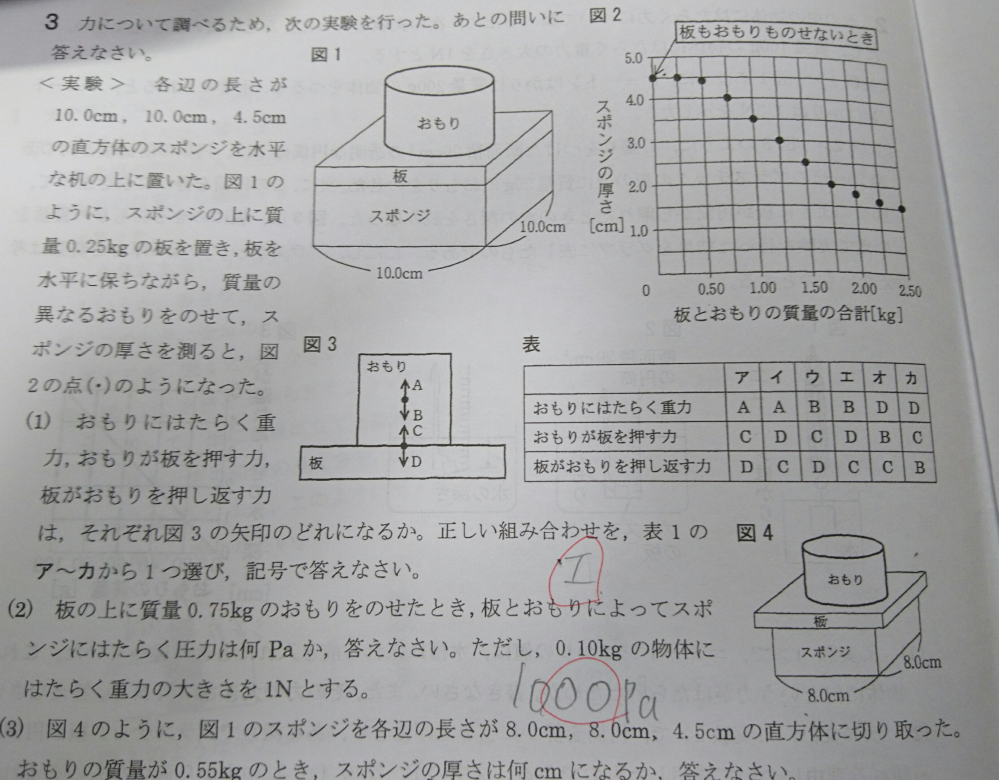 3 力について調べるため，次の実験を行った。あとの問いに
答えなさい。
＜実験＞ 各辺の長さが
10.0cm，10.0cm，4.5cm
の直方体のスポンジを水平
な机の上に置いた。図1の
ように，スポンジの上に質
量0.25kgの板を置き，板を
水平に保ちながら，質量の
異なるおもりをのせて，ス
ポンジの厚さを測ると，図
2の点(・)のようになった。
(1) おもりにはたらく重
力，おもりが板を押す力，
板がおもりを押し返す力
は，それぞれ図3の矢印のどれになるか。正しい組み合わせを，表1の
ア〜カから1つ選び，記号で答えなさい。
エ
(2) 板の上に質量0.75kgのおもりをのせたとき，板とおもりによってスポ
ンジにはたらく圧力は何Paか，答えなさい。ただし，0.10kgの物体に
はたらく重力の大きさを1Nとする。
1000Pa
(3) 図4のように，図1のスポンジを各辺の長さが8.0cm，8.0cm，4.5cmの直方体に切り取った。
おもりの質量が0.55kgのとき，スポンジの厚さは何cmになるか，答えなさい。
図1
おもり
板
スポンジ
10.0cm
10.0cm
図2
板もおもりものせないとき
5.0
4.0
3.0
2.0
1.0
スポンジの厚さ
[cm]
0 0.50 1.00 1.50 2.00 2.50
板とおもりの質量の合計[kg]
図3
おもり
A
B
C
D
板
表
ア イ ウ エ オ カ
おもりにはたらく重力 A A B B D D
おもりが板を押す力 C D C D B C
板がおもりを押し返す力 D C D C C B
図4
おもり
板
スポンジ
8.0cm
8.0cm